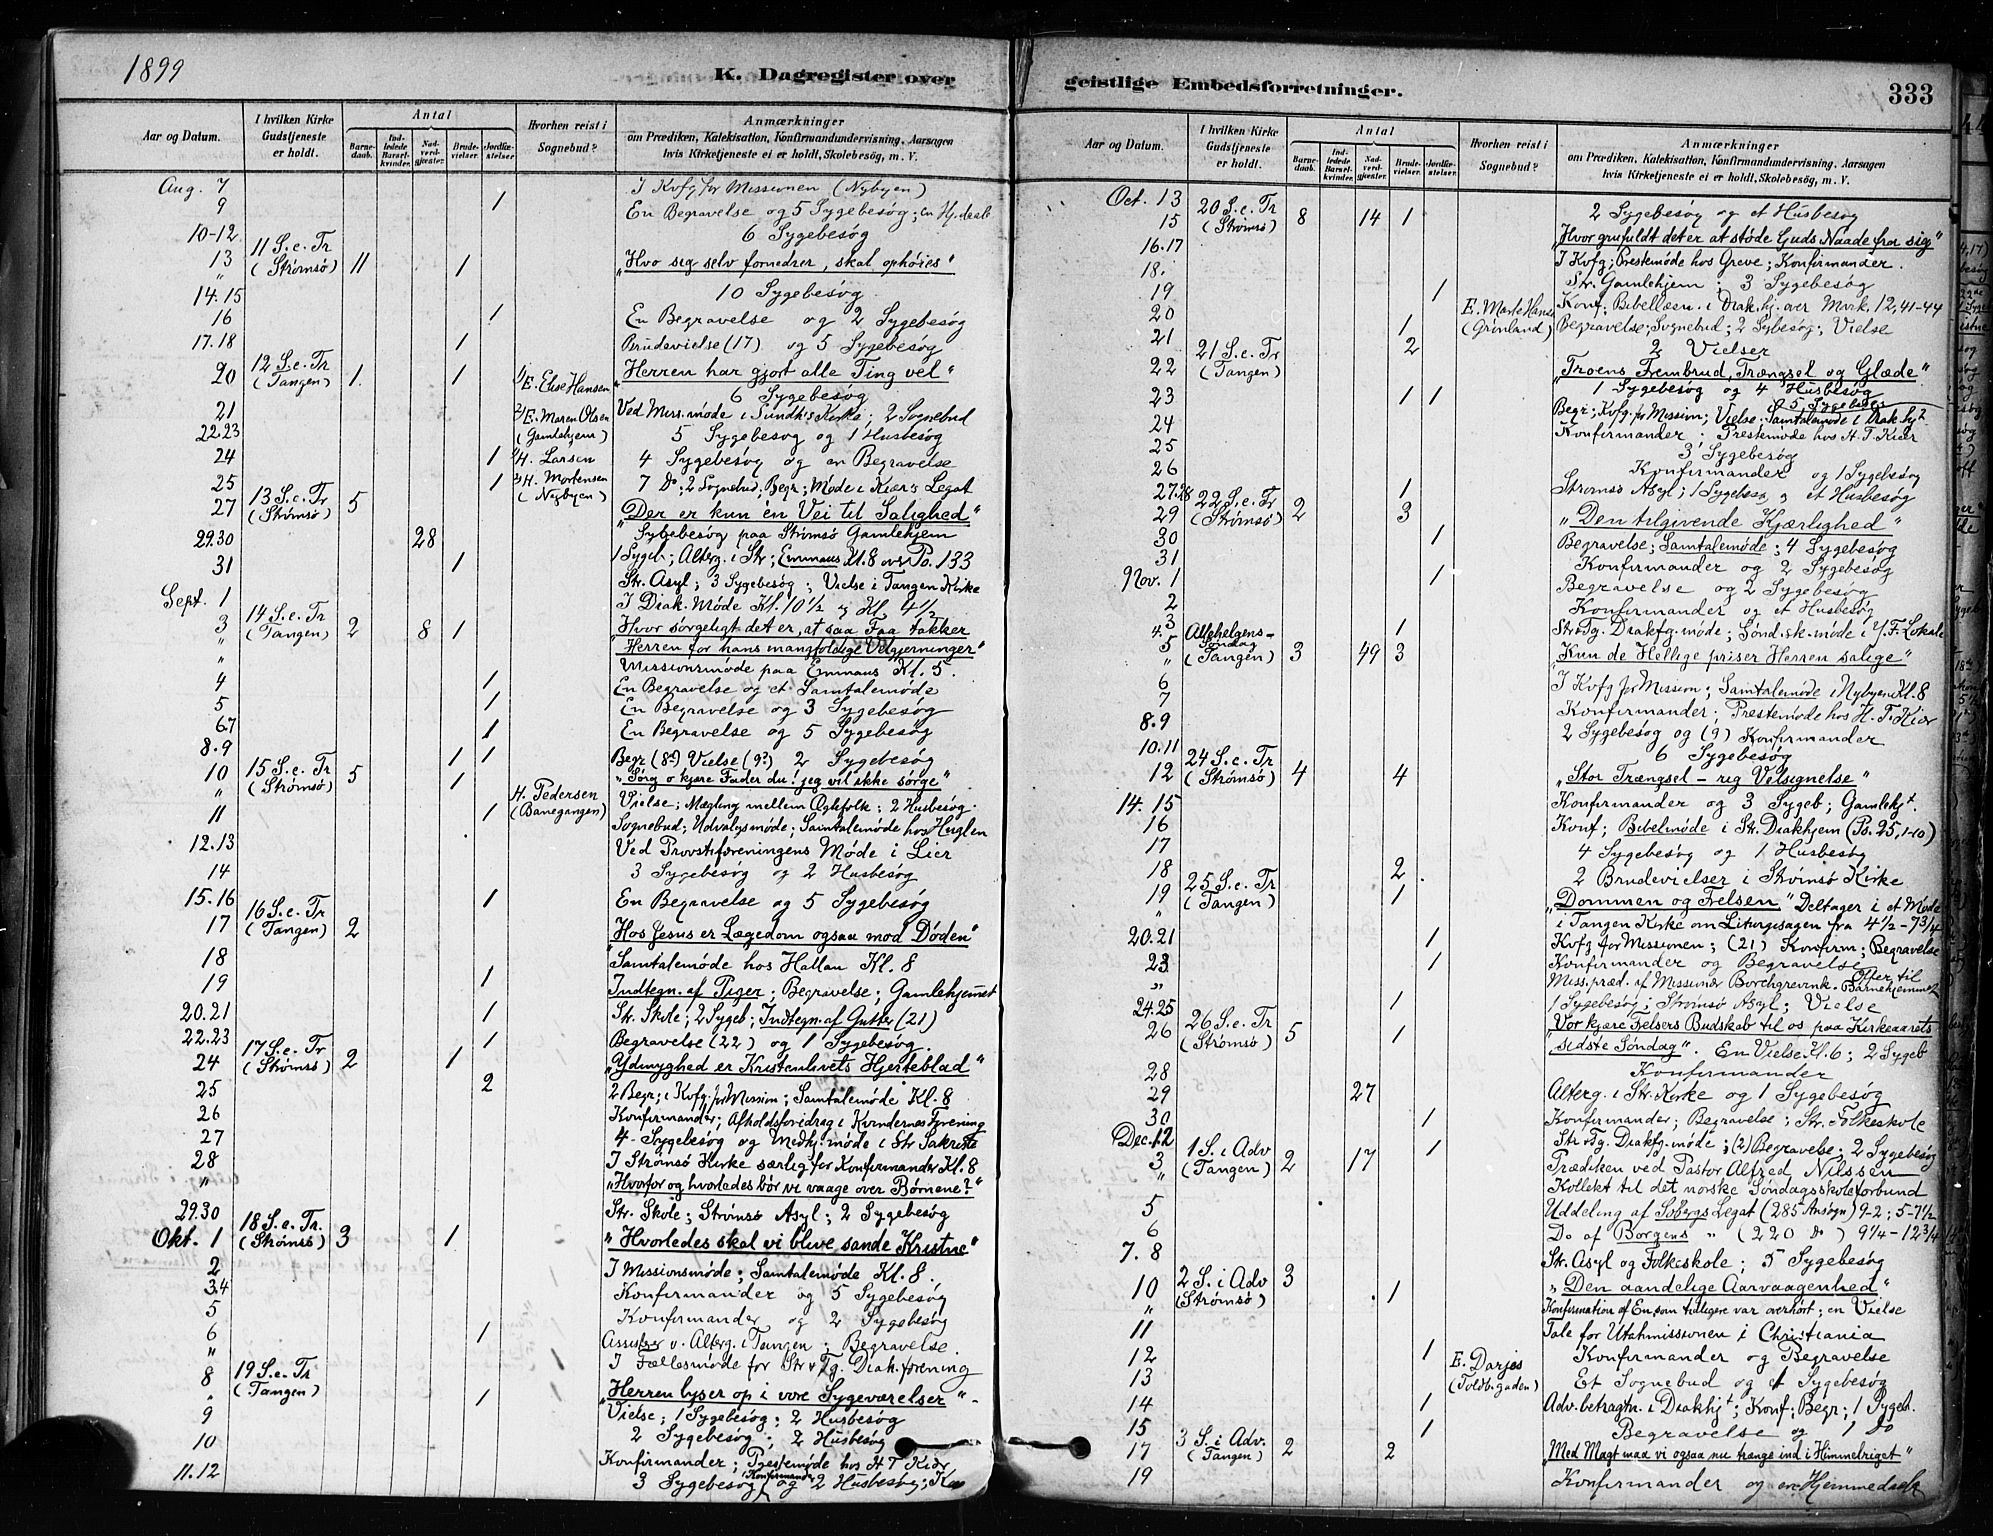 1899
K. Dagregister over
Aar og Datum.
I hvilken Kirke Gudstjeneste er holdt.
Antal
Barnedaab.
Indledede Barselkvinder.
Nadverdgjæster.
Brudevielser.
Jordfæstelser.
Hvorhen reist i Sognebud?
Anmærkninger
om Prædiken, Katekisation, Konfirmandundervisning, Aarsagen
hvis Kirketjeneste ei er holdt, Skolebesøg, m. V.
Aug. 7 I Kvfg for Missionen (Nybyen)
9 1 En Begravelse og 5 Sygebesøg; en Hj.daab
10-12 6 Sygebesøg
13 11 S. e. Tr (Strømsø) 11 1 "Hvo sig selv fornedrer, skal ophøies"
" 10 Sygebesøg
14.15
16 1 En Begravelse og 2 Sygebesøg
17.18 1 Brudevielse (17) og 5 Sygebesøg
20 12 S. e. Tr (Tangen) 1. 1 1/E. Elise Hansen "Herren har gjort alle Ting vel"
6 Sygebesøg
21 2/E. Maren Olsen (Gamlehjem) Ved Miss. møde i Sundh's Kirke; 2 Sognebud
22.23 5 Sygebesøg og 1 Husbesøg
24 1 1/H. Larsen 4 Sygebesøg og en Begravelse
25 1 2/H. Mortensen (Nybyen) 7 Do; 2 Sognebud; Begr; Møde i Kiær's Legat
27 13 S. e. Tr (Strømsø) 5 "Der er kun én Vei til Salighed"
29.30 28 Sygebesøg paa Strømsø Gamlehjem
31 1 1 Sygeb; Alterg. i Str; Emmaus Kl. 8 over Ps. 133
Str. Asyl; 3 Sygebesøg; Vielse i Tangen Kirke
Sept. 1 I Diak. Møde Kl. 10½ og Kl. 4½
3 14 S. e. Tr (Tangen) 2 8 1 "Hvor sørgeligt det er, at saa Faa takker
" Herren for hans mangfoldige Velgjerninger"
" Missionsmøde paa Emmaus Kl. 5.
4 1 En Begravelse og et Samtalemøde
5 1 En Begravelse og 3 Sygebesøg
6.7 1 En Begravelse og 5 Sygebesøg
8.9 1 1 Begr (8de) Vielse (9de) 2 Sygebesøg
10 15 S. e. Tr (Strømsø) 5 1 "Sørg o kjære Fader du! jeg vil ikke sørge"
" H. Pedersen (Banegangen) Vielse; Mægling mellem Ægtefolk; 2 Husbesøg
11 1 Sognebud; Udvalgsmøde; Samtalemøde hos Huglen
12.13 Ved Provstiforeningens Møde i Lier
14 3 Sygebesøg og 2 Husbesøg
15.16 1 En Begravelse og 5 Sygebesøg
17 16 S. e. Tr (Tangen) 2 "Hos Jesus er Lægedom ogsaa mod Døden"
18 Samtalemøde hos Hallan Kl. 8
19 1 Indtegn. af Piger; Begravelse; Gamlehjemmet
20.21 1 Str. Skole; 2 Sygeb; Indtegn. af Gutter (21)
22.23 1 Begravelse (22) og 1 Sygebesøg.
24 17 S. e. Tr (Strømsø) 2 1 "Ydmyghed er Kristenlivets Hjerteblad"
25 2 2 Begr; i Kvfg. for Mission; Samtalemøde Kl. 8
26 Konfirmander; Afholdsforedrag i Kvindernes Forening
27 4 Sygebesøg og Medhj. møde i Str Sakristi
28 I Strømsø Kirke særlig for Konfirmander Kl. 8
" "Hvorfor og hvorledes bør vi vaage over Børnene?"
29.30 Str. Skole; Strømsø Asyl; 2 Sygebesøg
Okt. 1 18 S. e. Tr. (Strømsø) 3 1 "Hvorledes skal vi blive sande Kristne"
2 I Missionsmøde; Samtalemøde Kl. 8.
3.4 Konfirmander og 5 Sygebesøg
5 Konfirmander og 2 Sygebesøg
6 1 Assister v. Alterg. i Tangen; Begravelse.
" I Fællesmøde for Str. & Tg. Diak. forening
8 19 S. e. Tr (Tangen) "Herren lyser op i vore Sygeværelser"
" 1 Vielse; 1 Sygebesøg; 2 Husbesøg
9 2 Sygebesøg; 2 Husbesøg
10 Konfirmander; Prestemøde hos H T Kiær
11.12 3 Sygebesøg og 2 Husbesøg; Konfirmander
geistlige Embedsforretninger.
333
Aar og Datum.
I hvilken Kirke Gudstjeneste er holdt.
Antal
Barnedaab.
Indledede Barselkvinder.
Nadverdgjæster.
Brudevielser.
Jordfæstelser.
Hvorhen reist i Sognebud?
Anmærkninger
om Prædiken, Katekisation, Konfirmandundervisning, Aarsagen
hvis Kirketjeneste ei er holdt, Skolebesøg, m. V.
Oct. 13 2 Sygebesøg og et Husbesøg
15 20 S. e. Tr (Strømsø) 8 14 1 "Hvor grufuldt det er at støde Guds Naade fra sig"
16.17 I Kvfg; Prestemøde hos Greve; Konfirmander.
18. Str. Gamlehjem; 3 Sygebesøg
19 1 Konf; Bibellæsn. i Diak. hj. over Mrk. 12,41-44
20 E. Marte Hans (Grønland) Begravelse; Sognebud; 2 Sybesøg; Vielse
21 1 2 Vielser
22 21 S. e. Tr (Tangen) 2 "Troens Frembrud, Trængsel og Glæde"
1 Sygebesøg og 4 Husbesøg
23 1 1 Begr; Kvfg. for Mission; Vielse; Samtalemøde i Diak. hjt 5 Sygebesøg
24 Konfirmander; Prestemøde hos H. T. Kiær
25 3 Sygebesøg
26 Konfirmander og 1 Sygebesøg
27.28 1 Strømsø Asyl; 1 Sygebesø og et Husbesøg
29 22 S. e. Tr (Strømsø) 2 3 "Den tilgivende Kjærlighed"
30 1 Begravelse; Samtalemøde; 4 Sygebesøg
31 Konfirmander og 2 Sygebesøg
Nov. 1 1 Begravelse og 2 Sygebesøg
2 Konfirmander og et Husbesøg
3 4. 1 Str & Tg. Diakfg. møde; Sønd. sk. møde i Y. F. Lokale
5 Allehelgens-Søndag (Tangen) 3 49 3 "Kun de Hellige priser Herren salige"
"
6 I Kvfg for Mission; Samtalemøde i Nybyen Kl. 8
7 Konfirmander; Prestemøde hos H. T. Kiær
8.9 2 Sygebesøg og (9) Konfirmander
10.11 6 Sygebesøg
12 24 S. e. Tr (Strømsø) 4 4 "Stor Trængsel – rig Velsignelse"
14. 15 Konfirmander og 3 Sygeb; Gamlehjt.
16 Konf; Bibelmøde i Str. Diakhjem (Ps. 25,1-10)
17 4 Sygebesøg og 1 Husbesøg
18 2 2 Brudevielser i Strømsø Kirke
19 25 S. e. Tr (Tangen) 1 "Dommen og Frelsen" Deltager i et Møde
" i Tangen Kirke om Liturgisagen fra 4½ – 7¾
20.21 1 Kvfg for Missionen; (21) Konfirm; Begravelse
23 1 Konfirmander og Begravelse
" Miss. præd. af Missionær Borchgrevink. Ofter til Barnehjemmet
24.25 1 1 Sygebesøg; Strømsø Asyl; Vielse
26 26 S. e. Tr (Strømsø) 5 1 "Vor kjære Frelsers Budskab til os paa Kirkeaarets
sidste Søndag". En Vielse Kl. 6; 2 Sygeb
28 Konfirmander
29 27 Alterg. i Str. Kirke og 1 Sygebesøg
30 1 Konfirmander; Begravelse; Str. Folkeskole
Dec. 1.2 1 Str & Tg. Diakfg. møde; (2) Begravelse; 2 Sygebesøg
3 1 S. i Adv (Tangen) 2 17 Prædiken ved Pastor Alfred Nilssen
" Kollekt til det norske Søndagsskoleforbund
5 Uddeling af Sobergs Legat (285 Ansøgn) 9-2; 5-7½
6 Do af Borgens " (220 Do) 9¼ – 12¾
7. 8 Str. Asyl og Folkeskole; 5 Sygebesøg
10 2 S. i Adv (Strømsø) 3 1 "Den aandelige Aarvaagenhed"
" Konfirmation af En, som tidligere var overhørt; en Vielse
11 Tale for Utahmissionen i Christiania
12 1 Konfirmander og Begravelse
13 E. Darjes (Toldbgaden) Et Sognebud og 1 Sygebesøg
14 1 Adv. betragtn. i Diakhjt; Konf; Begr; 1 Sygeb.
15 1 Begravelse og 1 Do
17 3 S. i Adv. (Tangen) 2 2 "Med Magt maa vi ogsaa nu trænge ind i Himmelriget"
19 Konfirmander og en Hjemmedaab